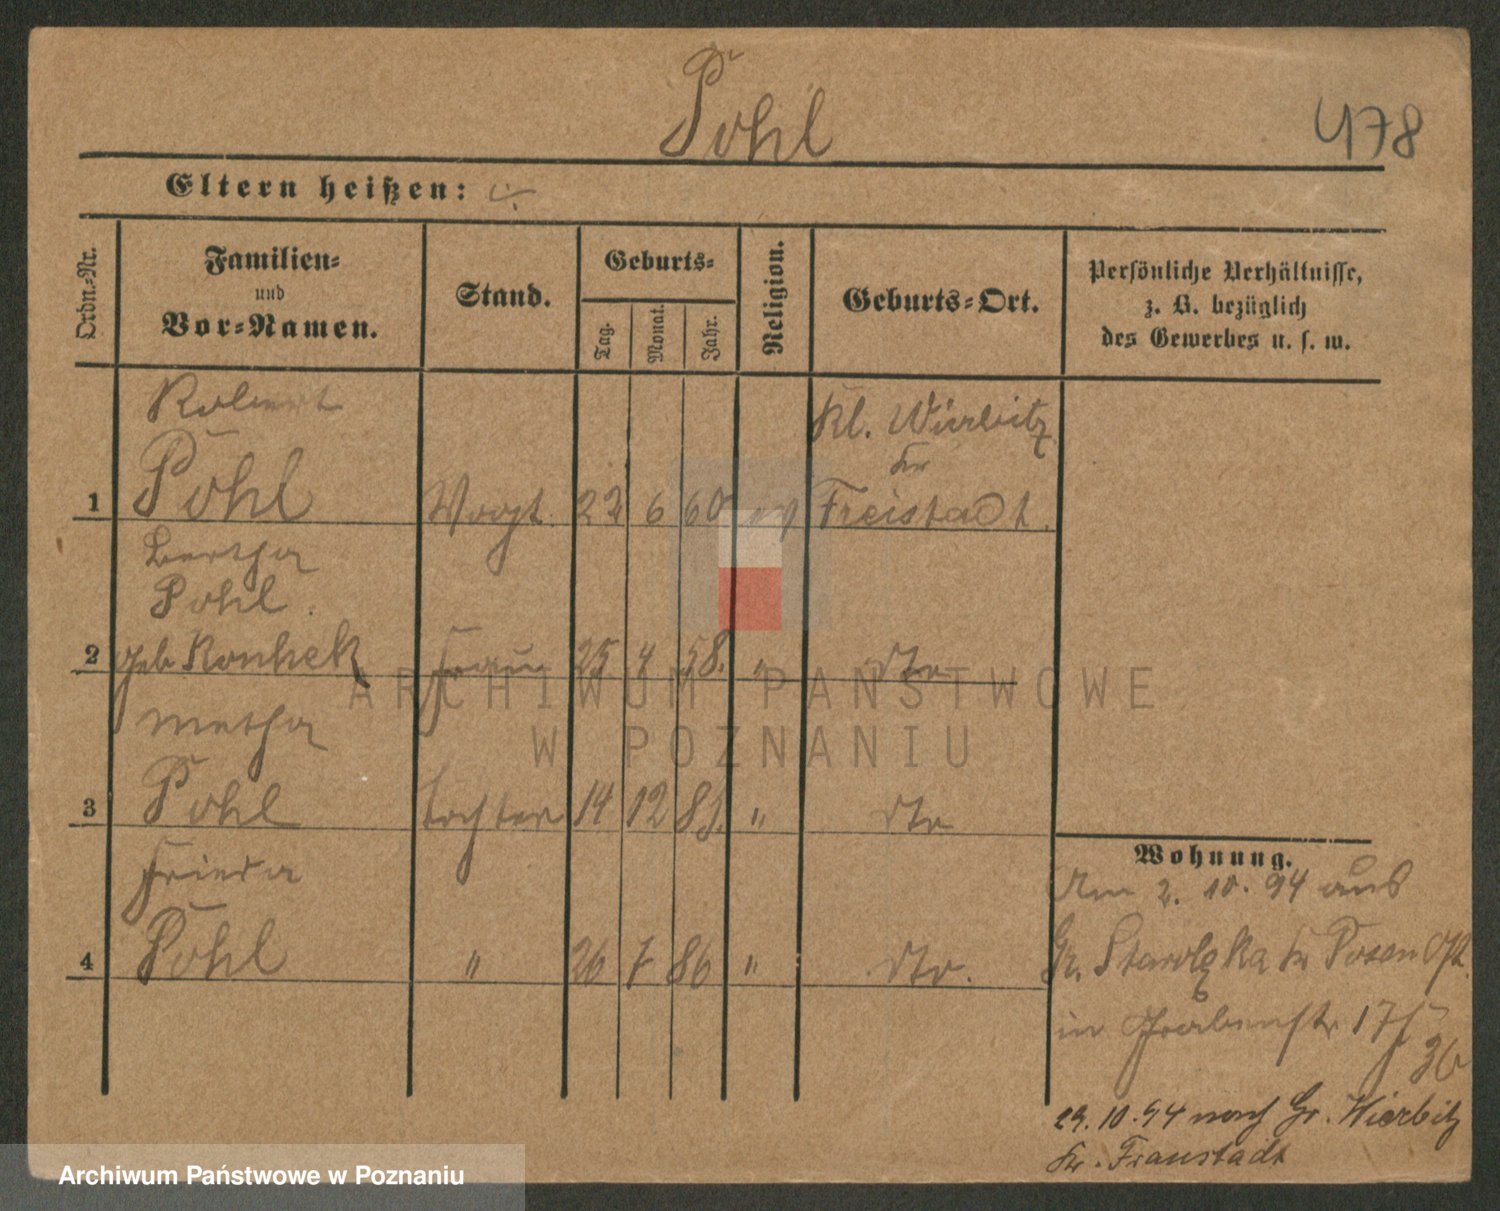 Pohl
478
Eltern heißen:
Ordn.-Nr.
Familien-
und
Vor-Namen.
Stand.
Geburts-
Tag.
Monat.
Jahr.
Religion.
Geburts-Ort.
Persönliche Verhältnisse,
z. B. bezüglich
des Gewerbes u. s. w.
Robert
Kl. Würbitz
Kr
1 Pohl Vogt. 22 6 60 ev Freistadt.
Bertha
Pohl.
2 geb Frau 25 4 58. " dto
Metha
3 Pohl Tochter 14 12 83. " dto
Frieda
4 Pohl " 26 7 86 " dto.
Wohnung.
Am 2. 10. 94 aus
Gr. Starolęka Kr Posen Ost.
in Grabenstr 17
29.10.94 nach Gr. Wierbitz
Kr. Fraustadt
ARCHIWUM PAŃSTWOWE
W POZNANIU
Archiwum Państwowe w Poznaniu